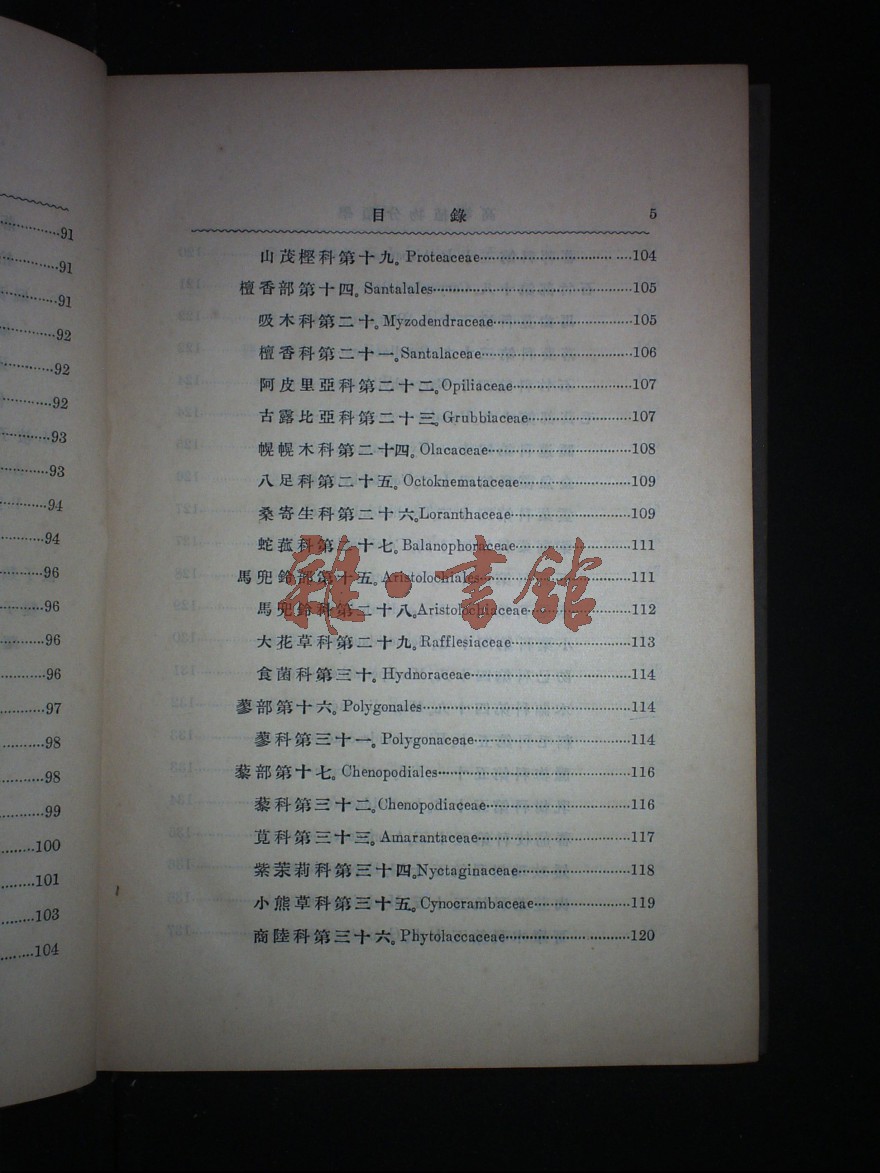 91
91
91
92
92
92
93
93
94
94
96
96
96
96
97
98
98
99
100
101
103
104
目錄 5
山茂樫科第十九。Proteaceae 104
檀香部第十四。Santalales 105
吸木科第二十。Myzodendraceae 105
檀香科第二十一。Santalaceae 106
阿皮里亞科第二十二。Opiliaceae 107
古露比亞科第二十三。Grubbiaceae 107
幌幌木科第二十四。Olacaceae 108
八足科第二十五。Octoknemataceae 109
桑寄生科第二十六。Loranthaceae 109
蛇菰科第二十七。Balanophoraceae 111
馬兜鈴部第十五。Aristolochiales 111
馬兜鈴科第二十八。Aristolochiaceae 112
大花草科第二十九。Rafflesiaceae 113
食菌科第三十。Hydnoraceae 114
蓼部第十六。Polygonales 114
蓼科第三十一。Polygonaceae 114
藜部第十七。Chenopodiales 116
藜科第三十二。Chenopodiaceae 116
莧科第三十三。Amarantaceae 117
紫茉莉科第三十四。Nyctaginaceae 118
小熊草科第三十五。Cynocrambaceae 119
商陸科第三十六。Phytolaccaceae 120
雜·書館